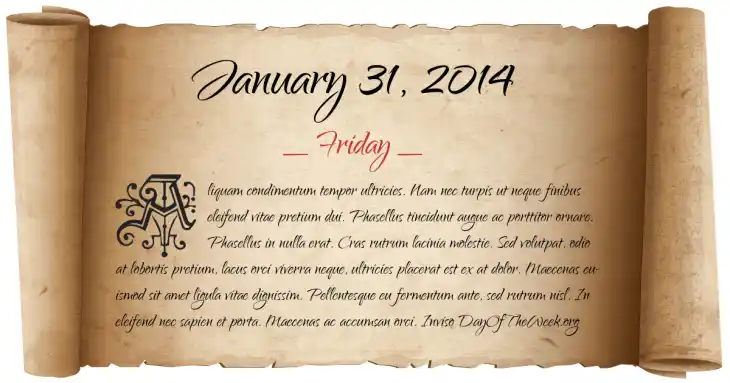 January 31, 2014
_ Friday _
Aliquam condimentum tempor ultricies. Nam nec turpis ut neque finibus
eleifend vitae pretium dui. Phasellus tincidunt augue ac porttitor ornare.
Phasellus in nulla erat. Cras rutrum lacinia molestie. Sed volutpat, odio
at lobortis pretium, lacus orci viverra neque, ultricies placerat est ex at dolor. Maecenas eu-
ismod sit amet ligula vitae dignissim. Pellentesque eu fermentum ante, sed rutrum nisl. In
eleifend nec sapien et porta. Maecenas ac accumsan orci. Invise DayOfTheWeek.org